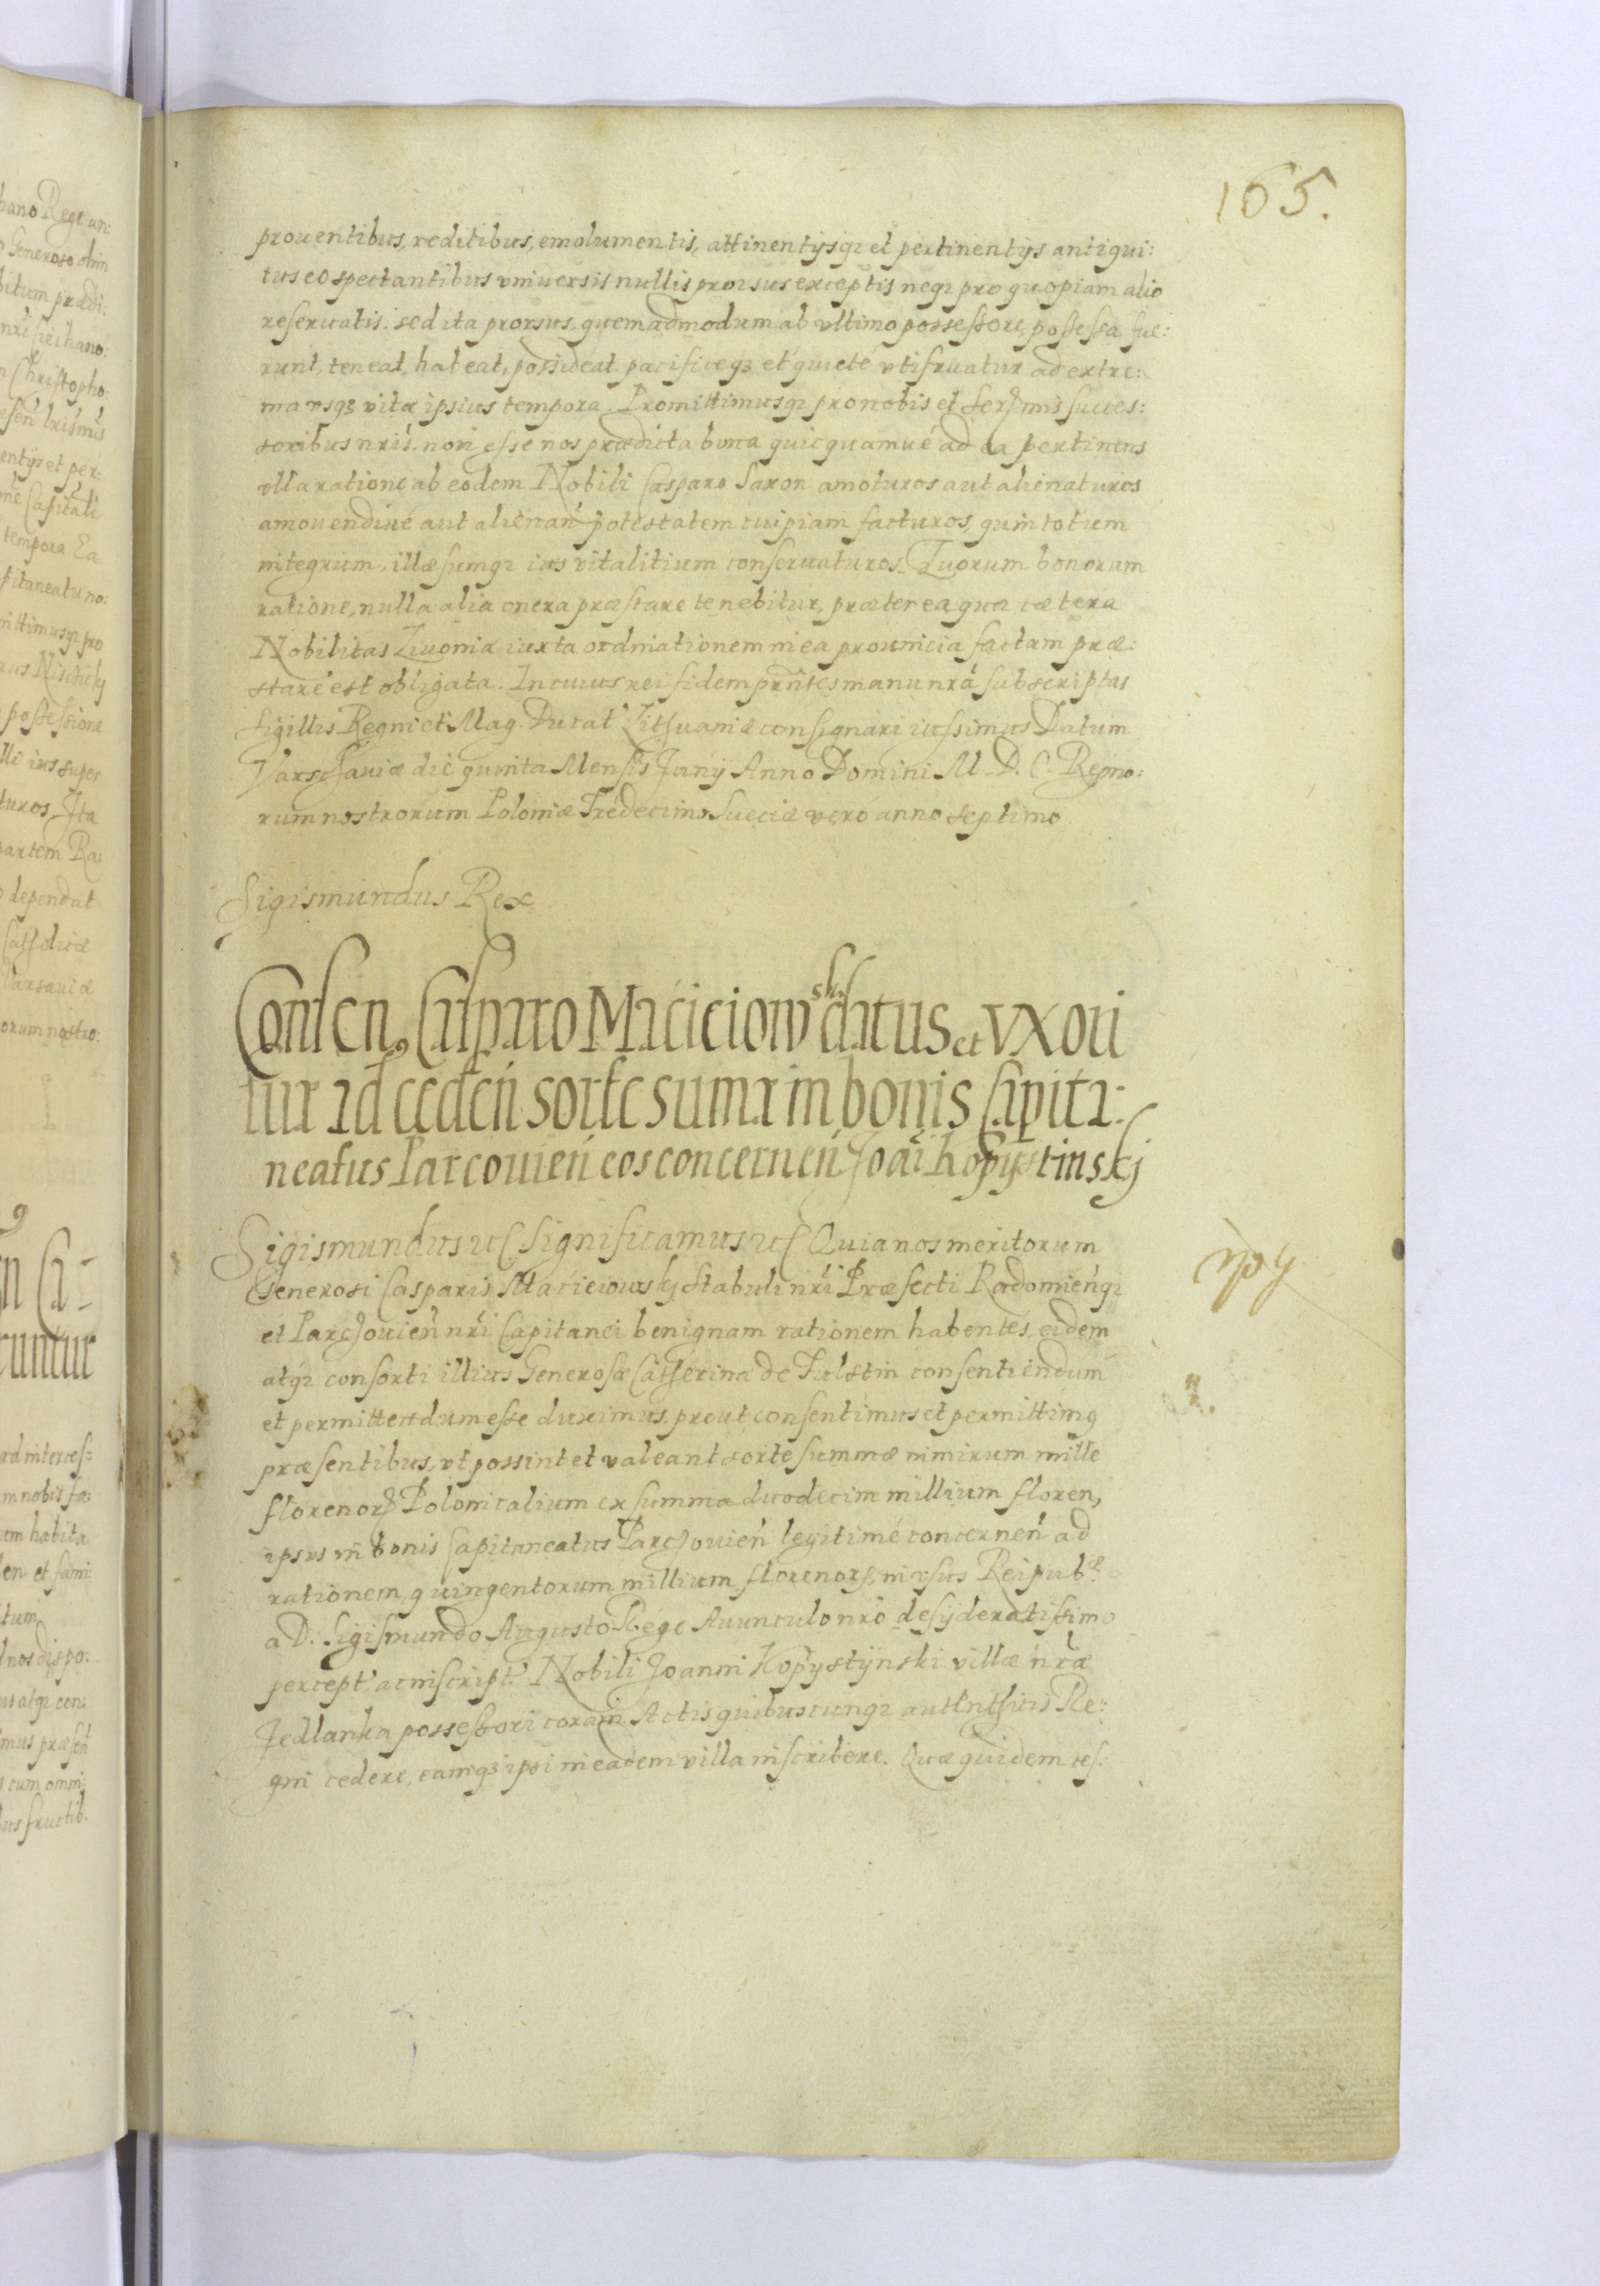 165.
prouentibus, reditibus, emolumentis, attinentijsq3 et pertinentijs antiqui:
tus eo spectantibus vniuersis nullis prorsus exceptis neq3 pro quopiam alio
reseruatis. sed ita prorsus quemadmodum ab vltimo possessore possessa fue:
runt, teneat, habeat, possideat pacificeq3 et quieté vtifruatur ad extre:
ma vsq3 vitæ ipsius tempora. Promittimusq3 pro nobis et Serꝫmis succes:
soribus nris. non esse nos prædicta bona quicquamué ad ea pertinens
vlla ratione ab eodem Nobili Casparo Saxon amoturos aut alienaturos
amouendiué aut alienan potestatem cuipiam facturos, quin totum
integrum, illæsumq3 ius vitalitium conseruaturos. Quorum bonorum
ratione, nulla alia onera præstare tenebitur, præterea quæ cætera
Nobilitas Liuoniæ iuxta ordinationem in ea prouincia factam præ:
staré est obligata. In cuius rei fidem prñtes manu nrá subscriptas
sigillis Regni et Mag. Ducat Lithuaniæ consignari iussimus Datum
Varschauiæ die quinta Mensis Junij Anno Domini M. D. C. Regno:
rum nostrorum Poloniæ Tredecimo Sueciæ vero anno septimo
Sigismundus Rex
Consen9 Casparo Macieiowski datus et vxori
eiur ad ceden sorte suma in bonis Capita:
neatus Parcouień eos concerneń Joãi Kopystinskj
Sigismundus etc Significamus etc Quia nos meritorum
Generosi Casparis Macieiowskj Stabuli nri Præfecti Radomieńq3
et Parchouień nri Capitanei benignam rationem habentes, eidem
atq3 consorti illius Generosæ Catherinæ de Fulstin consentiendum
et permittendum esse duximus, prout consentimus et permittim9
præsentibus, vt possint et valeant sorte summæ nimirum mille
florenorꝫ Polonicalium ex summa duodecim millium floren,
ipsis in bonis Capitaneatus Parchouień legitimé concerneń ad
rationem quingentorum millium florenorꝫ, in vsus Reipubᶜᵃᵉ
a D. Sigismundo Augusto Rege Auunculo nro desyderatissimo
percept, ac inscript. Nobili Joanni Kopystÿnski villæ nræ
Jedlanka possessori coram Actis quibuscunq3 authenthicis Re:
gni cedere, eamq3 ipsi in eadem villa inscribere. Quæ quidem ces: